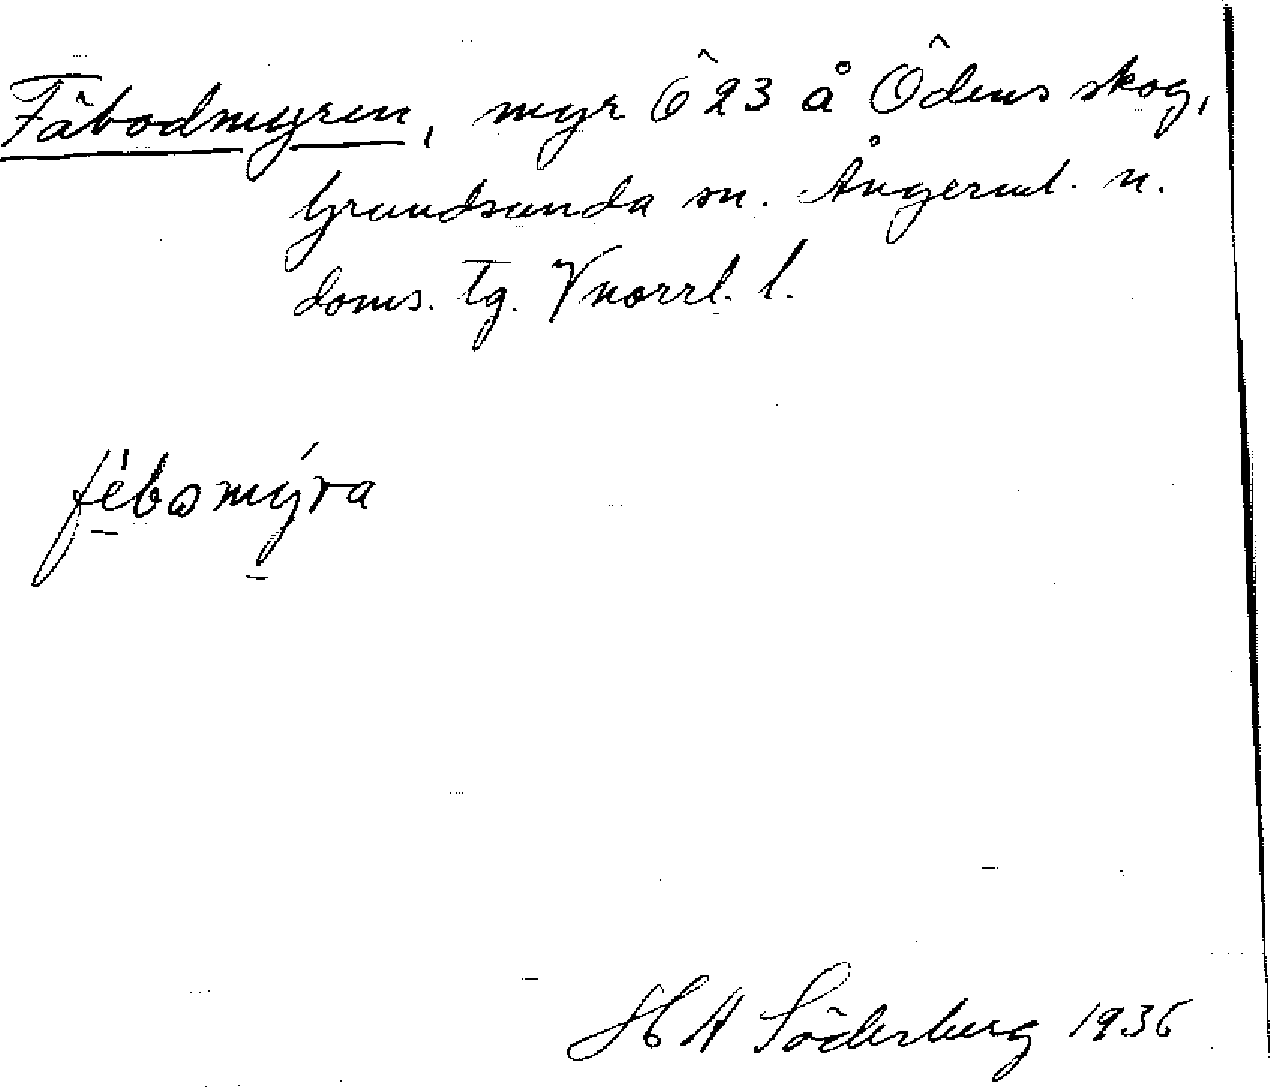 Fäbodmyren, myr Ô 23 å Ôdens skog,
Grundsunda sn. Ångerml. n.
doms. tg. Vnorrl. l.
fébωmýra
H A Söderberg 1936